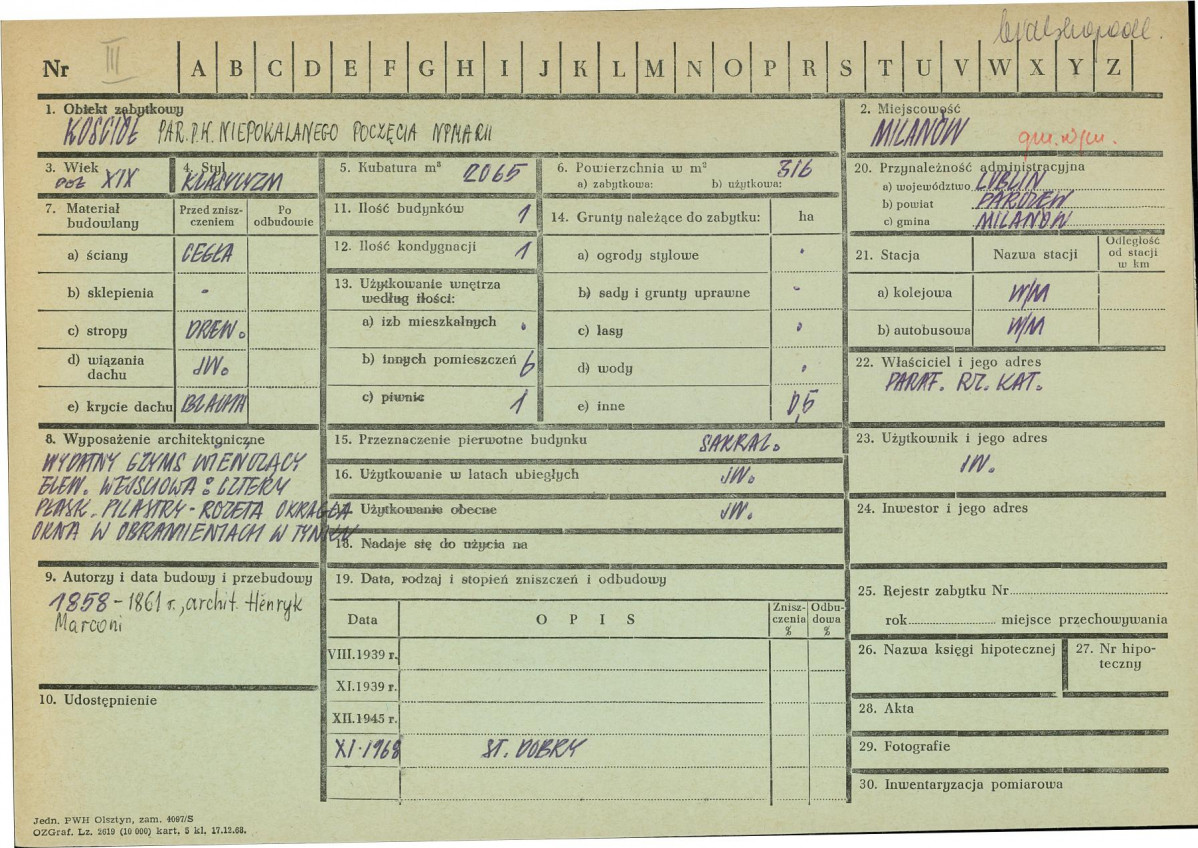 Nr III A B C D E F G H I J K L M N O P R S T U V W X Y Z
1. Obiekt zabytkowy
KOŚCIÓŁ PAR. P.W. NIEPOKALANEGO POCZĘCIA NPMARII
2. Miejscowość
MILANÓW
3. Wiek
POŁ XIX
4. Styl
KLASYCYZM
5. Kubatura m³ 2065
6. Powierzchnia w m² 316
a) zabytkowa: b) użytkowa:
20. Przynależność administracyjna
a) województwo LUBLIN
b) powiat PARCZEW
c) gmina MILANÓW
7. Materiał budowlany
Przed zniszczeniem
Po odbudowie
a) ściany CEGŁA
b) sklepienia -
c) stropy DREW.
d) wiązania dachu JW.
e) krycie dachu BLACHA
11. Ilość budynków 1
12. Ilość kondygnacji 1
13. Użytkowanie wnętrza
według ilości:
a) izb mieszkalnych .
b) innych pomieszczeń 6
c) piwnic 1
14. Grunty należące do zabytku: ha
a) ogrody stylowe .
b) sady i grunty uprawne -
c) lasy .
d) wody .
e) inne 0,5
21. Stacja
Nazwa stacji
Odległość
od stacji
w km
a) kolejowa W/M
b) autobusowa W/M
22. Właściciel i jego adres
PARAF. RZ. KAT.
8. Wyposażenie architektoniczne
WYDATNY GZYMS WIEŃCZĄCY
ELEW. WEJŚCIOWA: CZTERY
PŁASK. PILASTRY - ROZETA OKRĄGŁA
OKNA W OBRAMIENIACH W TYNKU
15. Przeznaczenie pierwotne budynku SAKRAL.
16. Użytkowanie w latach ubiegłych JW.
Użytkowanie obecne JW.
18. Nadaje się do użycia na
23. Użytkownik i jego adres
JW.
24. Inwestor i jego adres
9. Autorzy i data budowy i przebudowy
1858 - 1861 r., archit. Henryk
Marconi
10. Udostępnienie
19. Data, rodzaj i stopień zniszczeń i odbudowy
Data
OPIS
Zniszczenia %
Odbudowa %
VIII.1939 r.
XI.1939 r.
XII.1945 r.
XI.1968 ST. DOBRY
25. Rejestr zabytku Nr
rok miejsce przechowywania
26. Nazwa księgi hipotecznej
27. Nr hipoteczny
28. Akta
29. Fotografie
30. Inwentaryzacja pomiarowa
Jedn. PWH Olsztyn, zam. 4097/S
OZGraf. Lz. 2619 (10 000) kart, 5 kl. 17.12.68.